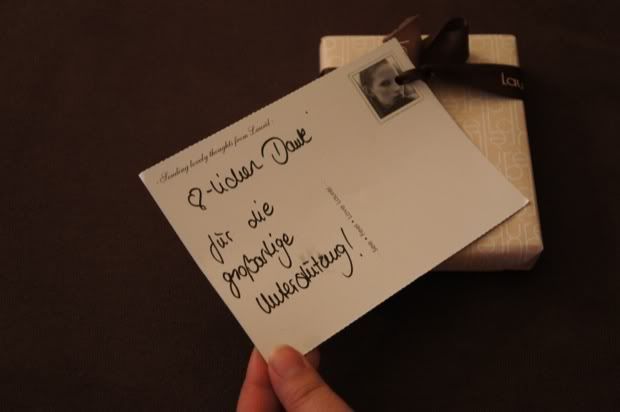 - Sending lovely thoughts from Laurèl -
♡-lichen Dank
für die
großartige
Unterstützung!
See • Feel • Love Laurèl
Lau